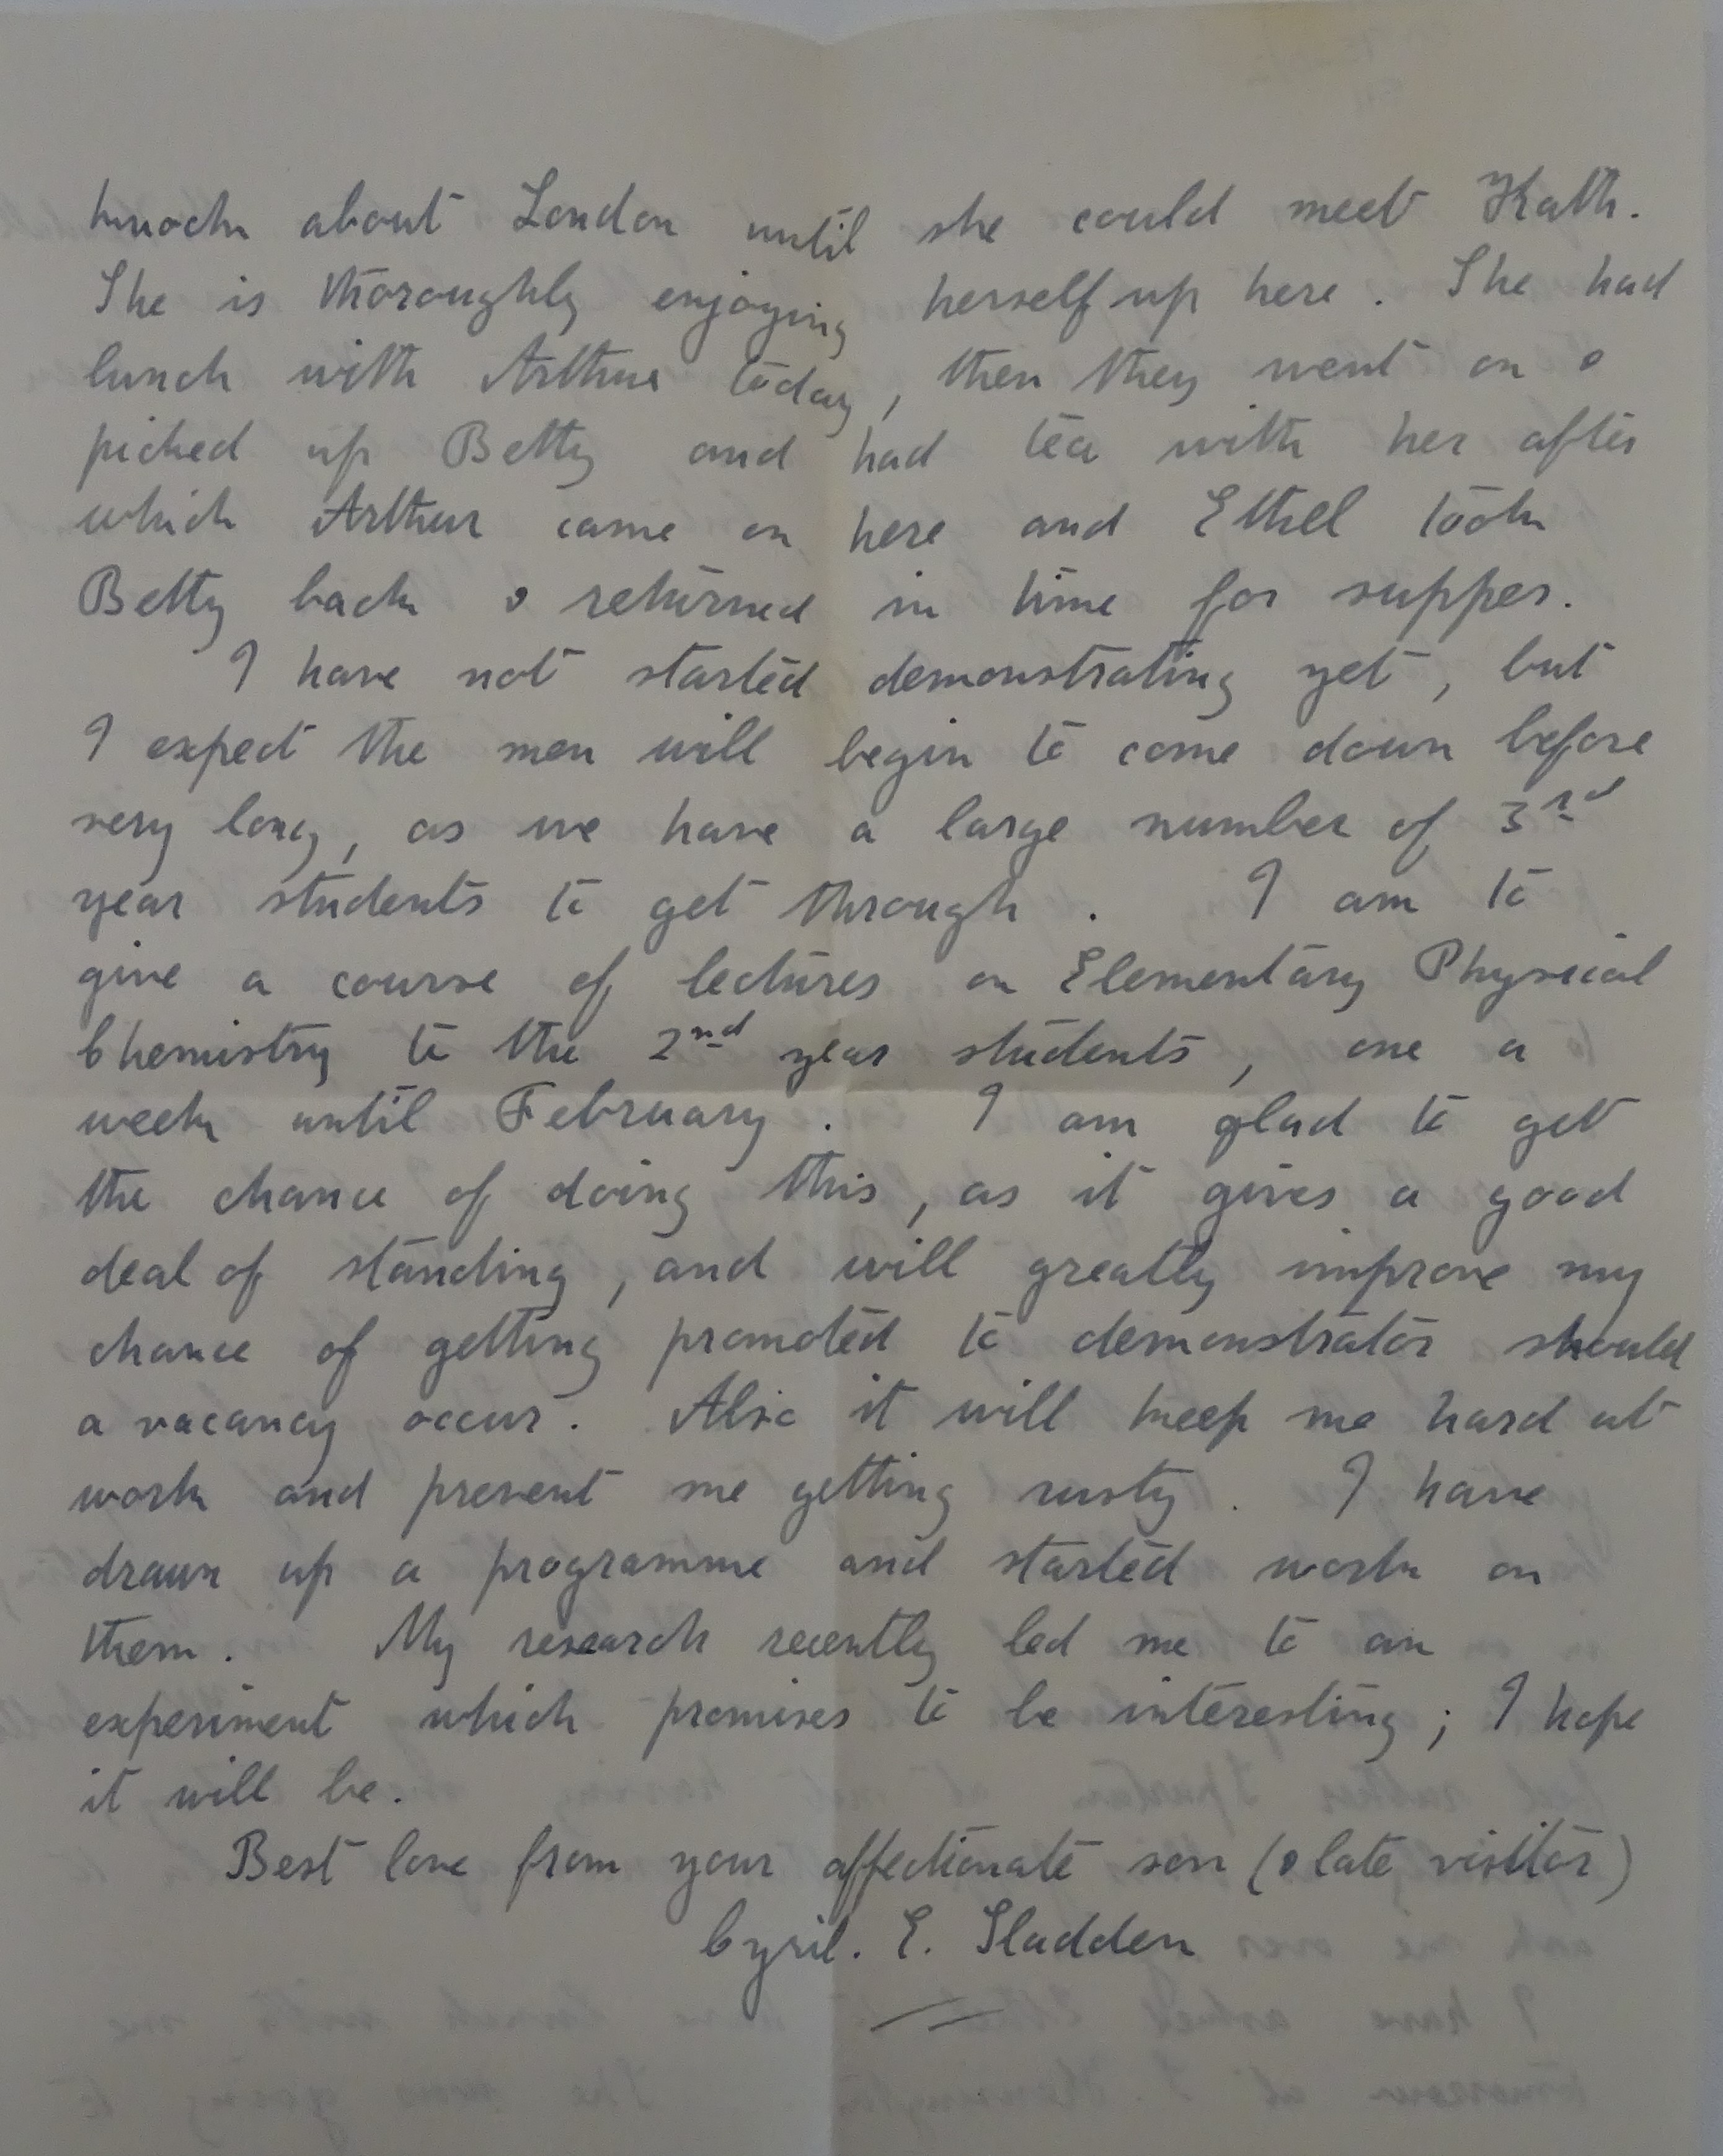 knock about London until she could meet Kath.
She is thoroughly enjoying herself up here. She had
lunch with Arthur today, then they went on &
picked up Betty and had tea with her after
which Arthur came on here and Ethel took
Betty back & returned in time for supper.
I have not started demonstrating yet, but
I expect the men will begin to come down before
very long, as we have a large number of 3rd
year students to get through. I am to
give a course of lectures on Elementary Physical
Chemistry to the 2nd year students, one a
week until February. I am glad to get
the chance of doing this, as it gives a good
deal of standing, and will greatly improve my
chance of getting promoted to demonstrator should
a vacancy occur. Also it will keep me hard at
work and prevent me getting rusty. I have
drawn up a programme and started work on
them. My research recently led me to an
experiment which promises to be interesting; I hope
it will be.
Best love from your affectionate son (& late visitor)
Cyril. E. Sladden